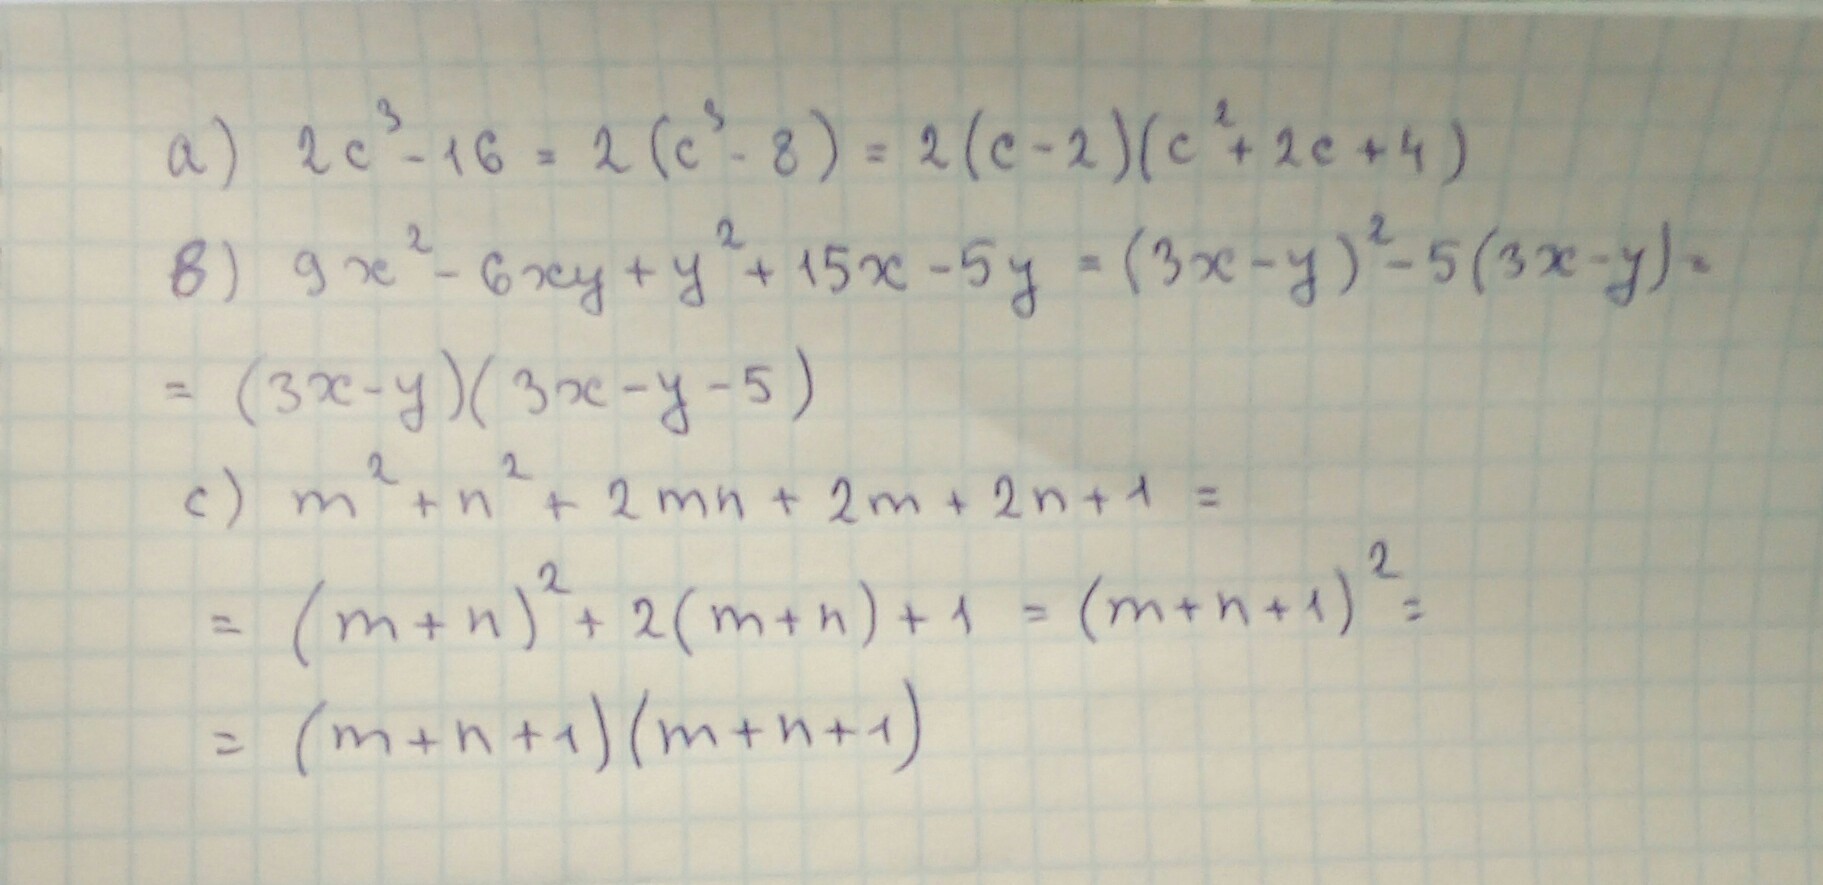 a) 2c³ - 16 = 2(c³ - 8) = 2(c - 2)(c² + 2c + 4)
в) 9x² - 6xy + y² + 15x - 5y = (3x - y)² - 5(3x - y) =
= (3x - y)(3x - y - 5)
c) m² + n² + 2mn + 2m + 2n + 1 =
= (m + n)² + 2(m + n) + 1 = (m + n + 1)² =
= (m + n + 1)(m + n + 1)